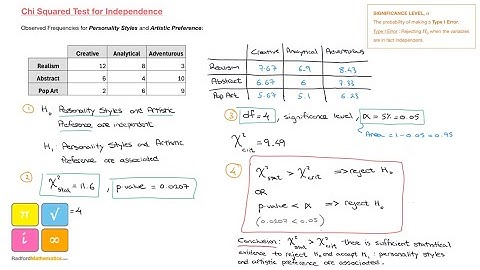 Chi Squared Test for Independence
Observed Frequencies for Personality Styles and Artistic Preference:
Creative Analytical Adventurous
Realism 12 8 3
Abstract 6 4 10
Pop Art 2 6 9
Creative Analytical Adventurous
Realism 7.67 6.9 8.43
Abstract 6.67 6 7.33
Pop Art 5.67 5.1 6.23
SIGNIFICANCE LEVEL, α
The probability of making a Type I Error.
Type I Error : Rejecting H₀ when the variables
are in fact independent.
① H₀: Personality Styles and Artistic
Preference are independent
H₁: Personality Styles and Artistic
Preference are associated
② χ²stat = 11.6, p-value = 0.0207
= 4
π √
i ∞
RadfordMathematics.com
③ df = 4, significance level, α = 5% = 0.05
Area = 1 - 0.05 = 0.95
χ²crit = 9.49
④ χ²stat > χ²crit ⇒ reject H₀
OR
p-value < α ⇒ reject H₀
(0.0207 < 0.05)
Conclusion: χ²stat > χ²crit there is sufficient statistical
evidence to reject H₀ and accept H₁ : personality styles
and artistic preference are associated.